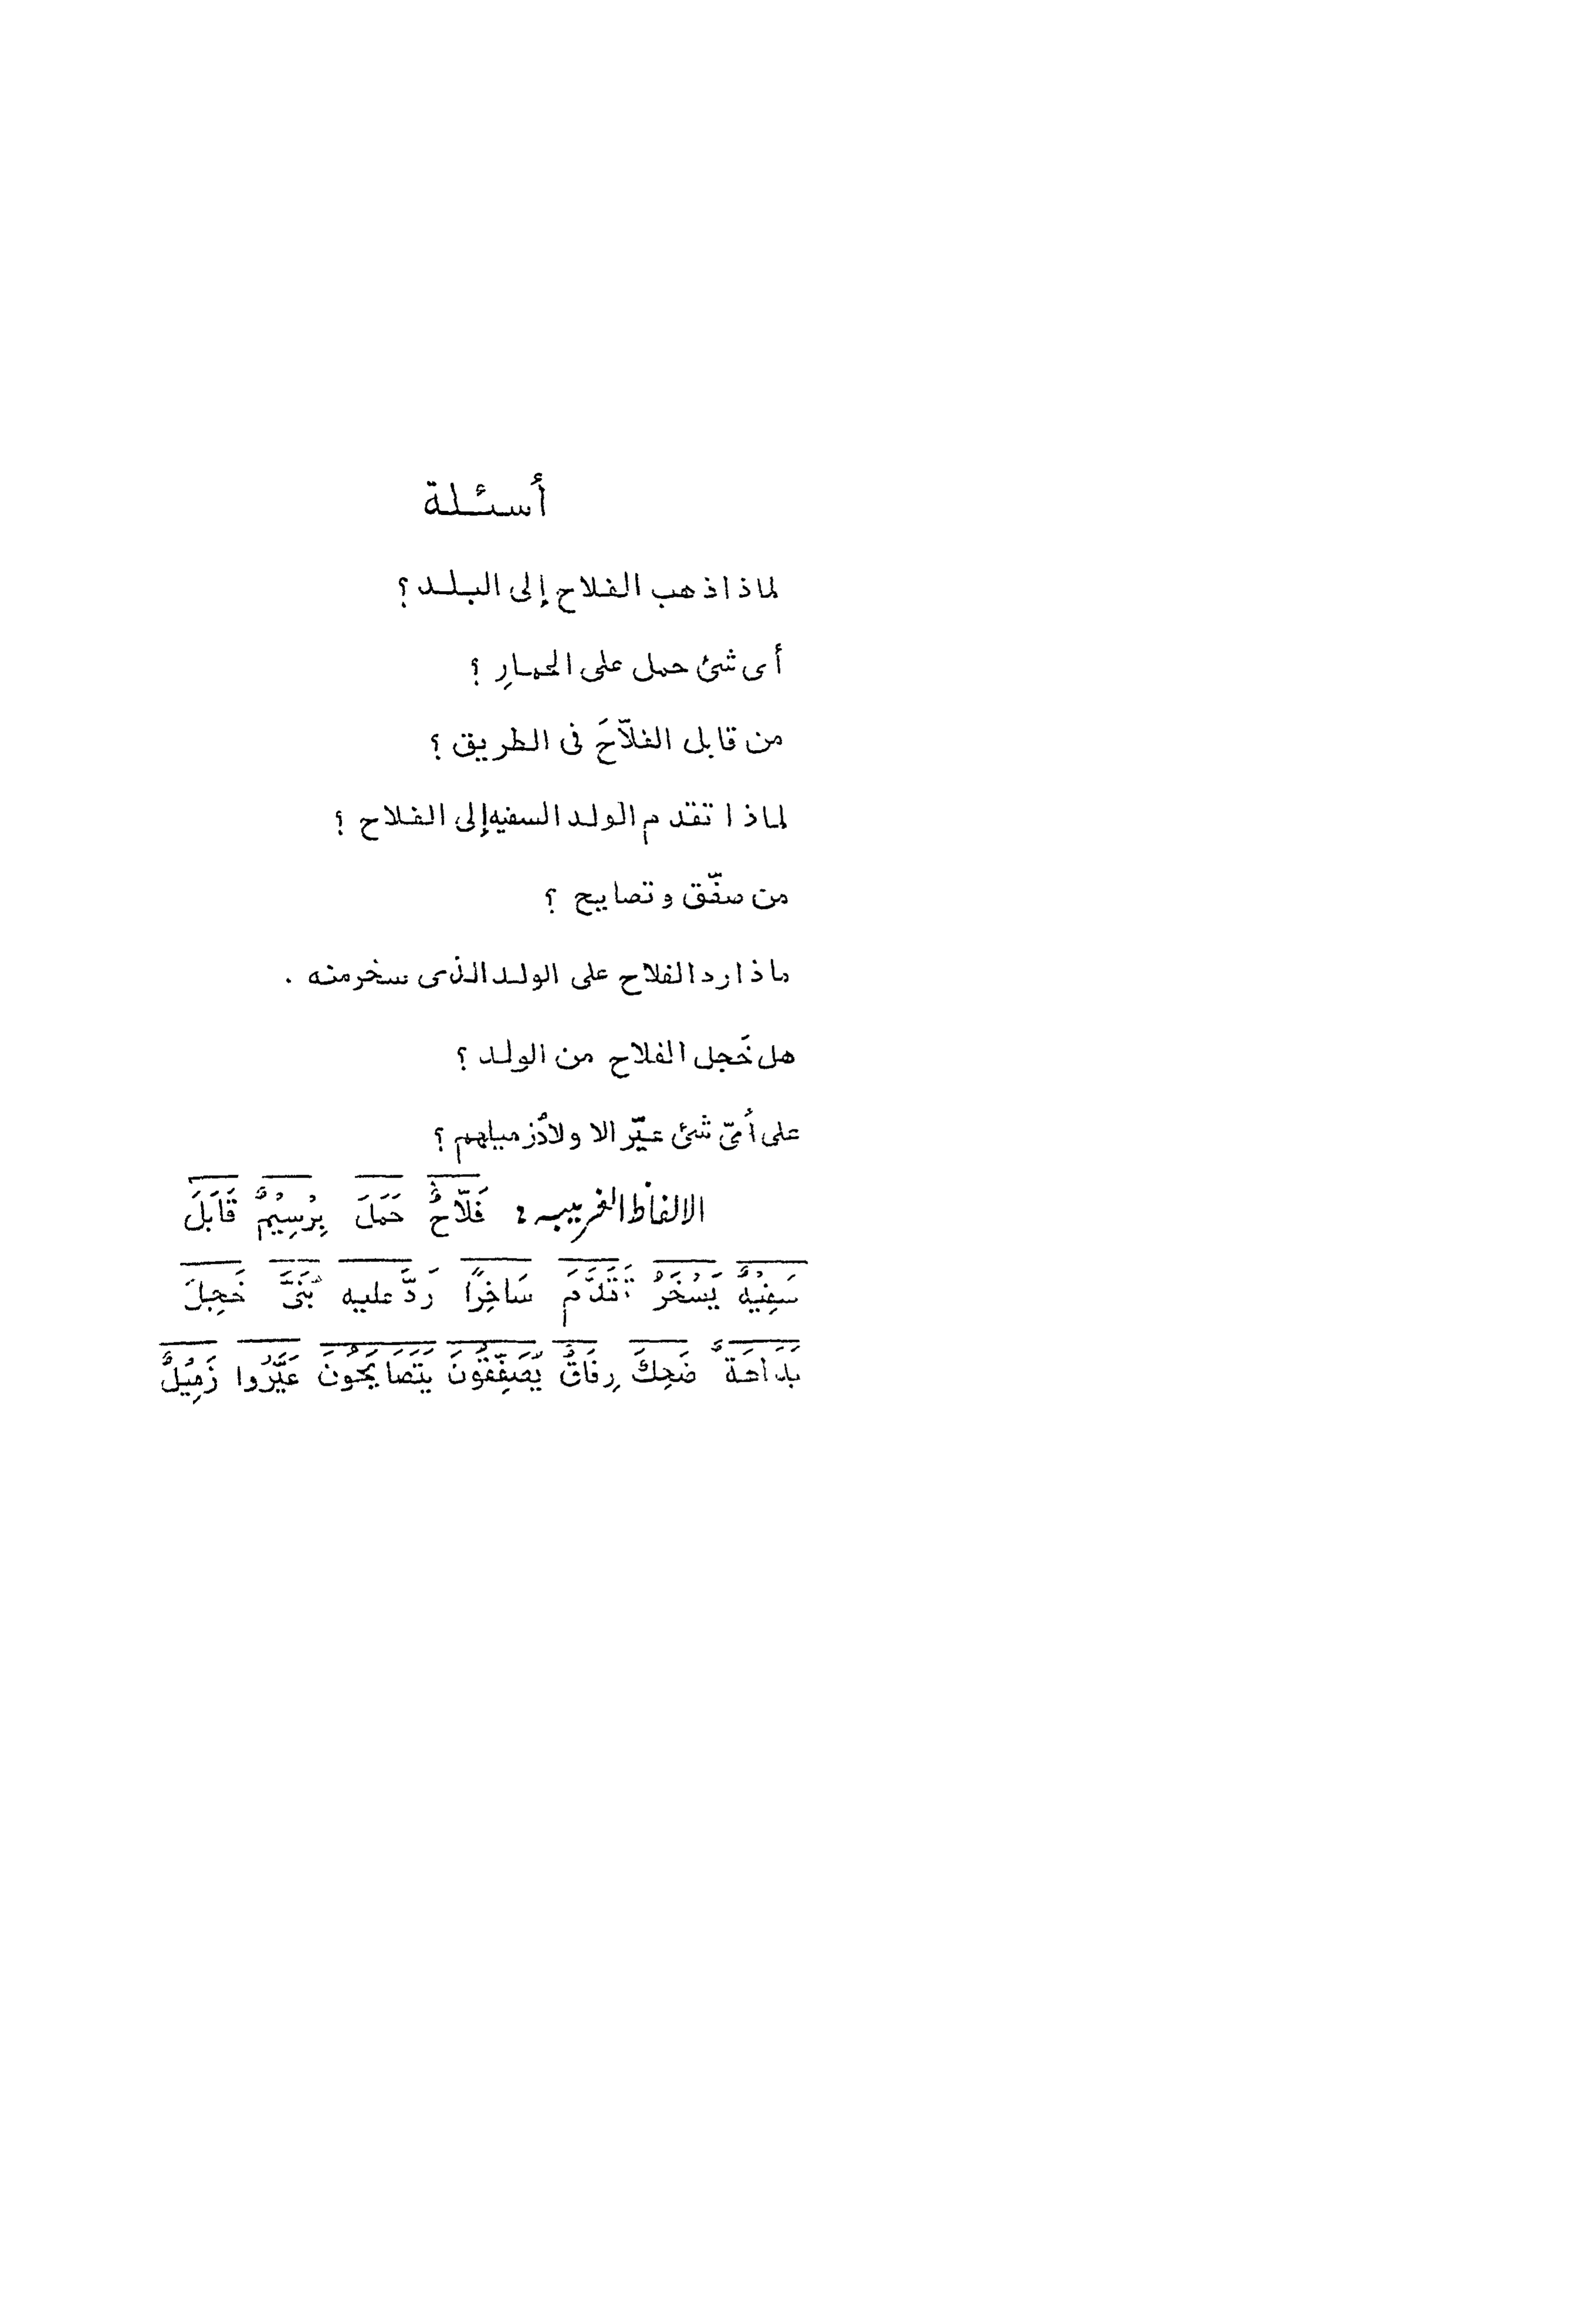 أسئلة
لماذا ذهب الفلاح إلى البلد ؟
أى شئ حمل على الحمارِ ؟
من قابل الفلاّحَ فى الطريق ؟
لماذا تقدم الولد السفيه إلى الفلاح ؟
من صفّق وتصايح ؟
ماذا رد الفلاح على الولد الذى سخر منه .
هل خَجل الفلاح من الولد ؟
على أىّ شئ عيّر الاولادُ زميلهم ؟
الالفاظ الغريبه : فَلَّاحٌ حَمَلَ بِرْسِيْمٌ قَابَلَ
سَفِيْهٌ يَسْخَرُ تَقَدَّمَ سَاخِرًا رَدَّ عليه بُنَىَّ خَجِلَ
بَدَاهَةً ضَحِكَ رِفَاقٌ يُصَفِّقُونَ يَتَصَايَحُونَ عَيَّرُوا زَمِيْلٌ